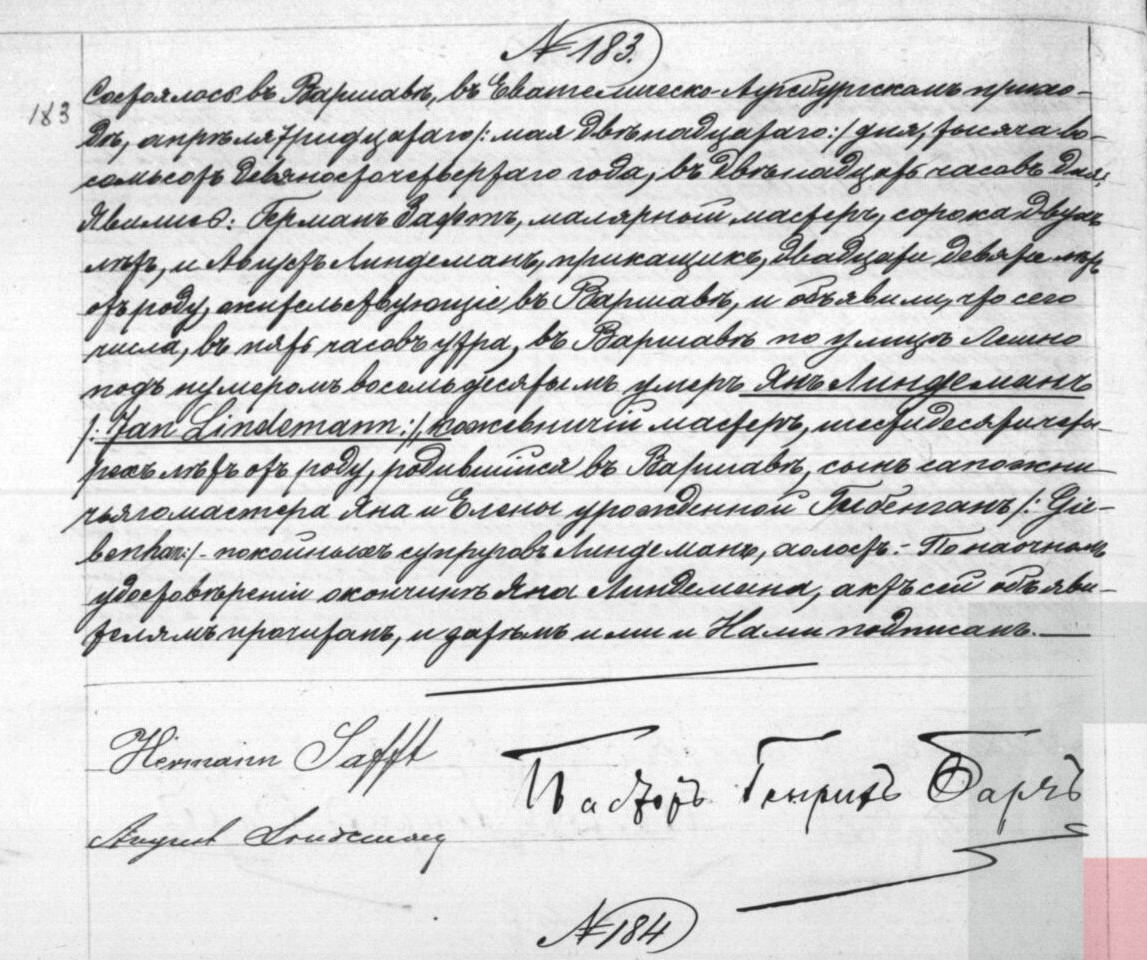 № 183.
183
Состоялось въ Варшавѣ, въ Евангелическо-Аугсбургскомъ прихо-
дѣ, апрѣля тридцатаго /: мая двѣнадцатаго :/ дня, тысяча во-
семьсотъ девяносто четвертаго года, въ двѣнадцать часовъ дня.
Явились: Германъ Зафтъ, малярный мастеръ, сорока двухъ
лѣтъ, и Августъ Линдеманъ, прикащикъ, двадцати девяти лѣтъ
отъ роду, жительствующіе въ Варшавѣ, и объявили, что сего
числа, въ пять часовъ утра, въ Варшавѣ по улицѣ Лешно
подъ нумеромъ восемьдесятымъ умеръ Янъ Линдеманъ
/: Jan Lindemann :/, кожевничій мастеръ, шестидесяти четы-
рехъ лѣтъ отъ роду, родившійся въ Варшавѣ, сынъ сапожни-
чьяго мастера Яна и Елены урожденной Гибенганъ /: Gie-
benhan :/ - покойныхъ супруговъ Линдеманъ, холостъ. - По наочномъ
удостовѣреніи о кончинѣ Яна Линдемана, актъ сей объяви-
телямъ прочитанъ, и затѣмъ ими и Нами подписанъ. —
Hermann Safft
Пасторъ Генрихъ
August Lindemann
№ 184